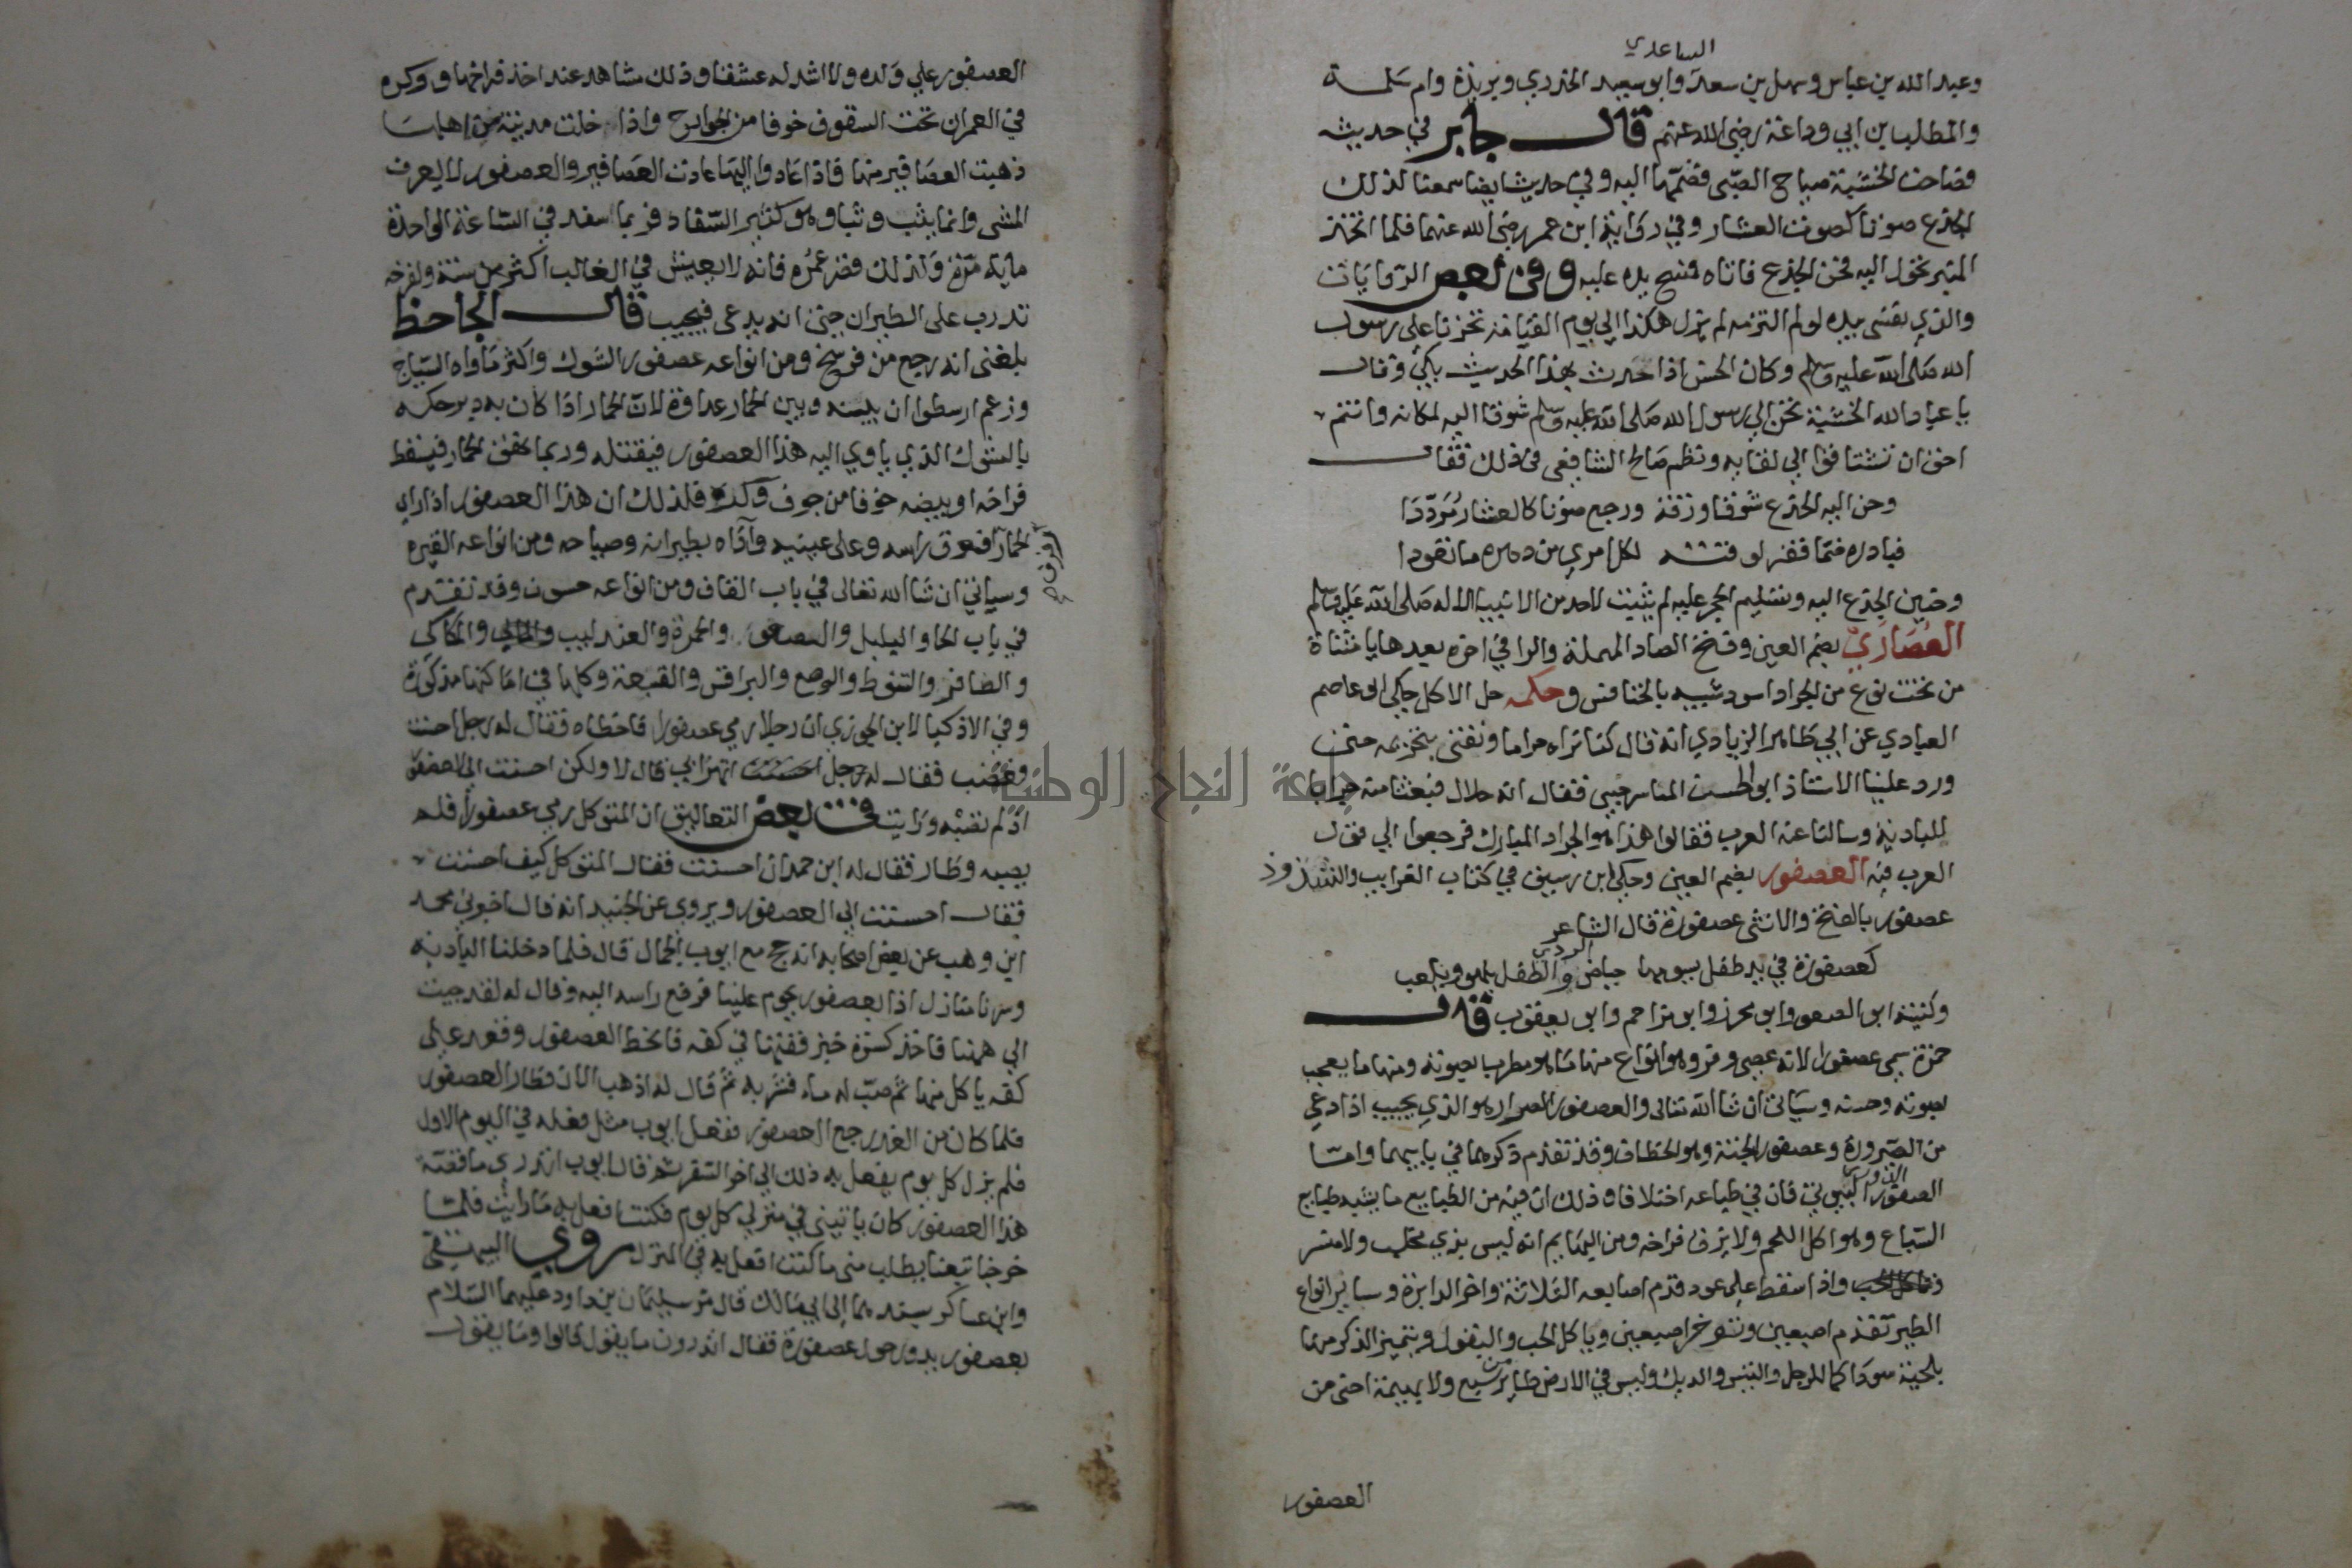 الساعدي
وعبد الله بن عباس وسهل بن سعد وابو سعيد الخدري وبريدة وام سلمة
والمطلب بن ابي وداعة رضي الله عنهم قال جابر في حديثه
فصاحت الخشبة صياح الصبى فضمها اليه وفي حديث ايضا سمعنا لذلك
الجذع صوتا كصوت العشار وفي رواية ابن عمر رضي الله عنهما فلما اتخذ
المنبر تحول اليه فحن الجذع فاتاه فمسح يده عليه وفى بعض الروايات
والذي نفسى بيده لو لم التزمه لم يزل هكذا الي يوم القيامة تحزنا على رسول
الله صلى الله عليه وسلم وكان الحسن اذا حدث بهذا الحديث بكى وقال
يا عباد الله الخشبة تحن الي رسول الله صلى الله عليه وسلم شوقا اليه لمكانه وانتم
احق ان تشتاقوا الي لقايه ونظم صالح الشافعى فى ذلك فقال
وحن اليه الجذع شوقا ورقة ورجع صوتا كالعشار مرددا
فبادره ضما فقر لوقته لكل امري من دهره ما تعودا
وحنين الجذع اليه وتسليم الحجر عليه لم يثبت لاحد من الانبيا الا له صلى الله عليه وسلم
العصاري بضم العين وفتح الصاد المهملة والرا في اخره بعدها يا مثناة
من تحت نوع من الجراد اسود شبيه بالخنافس وحكمه حل الاكل حكى ابو عاصم
العبادي عن ابي طاهر الزيادي انه قال كنا نراه حراما ونفتى بتحريمه حتى
ورد علينا الاستاذ ابو الحسن الماسرجسي فقال انه حلال فبعثنا منه جرابا
للبادية وسالنا عنه العرب فقالوا هذا هو الجراد المبارك فرجعوا الي قول
العرب فيه العصفور بضم العين وحكى ابن رسيق في كتاب الغرايب والشذوذ
عصفور بالفتح والانثى عصفورة قال الشاعر
كعصفورة في يد طفل يسومها حياض الردي والطفل يلهو ويلعب
وكنيته ابو الصعو وابو محرز وابو مزاحم وابو يعقوب قال
حمزة سمي عصفورا لانه عصى وفر وهو انواع منها ما هو مطرب بصوته ومنها ما يعجب
بصوته وحسنه وسياتى ان شا الله تعالى والعصفور الصرار هو الذي يجيب اذا دعي
من الصرورة وعصفور الجنة وهو الخطاف وقد تقدم ذكرهما في بابيهما واما
العصفور الدوري البيوتي فان في طباعه اختلافا وذلك ان فيه من الطبايع ما يشبه طبايع
السباع وهو اكل اللحم ولا يزق فراخه ومن البهايم انه ليس بذي مخلب ولا منسر
واذا سقط على عود قدم اصابعه الثلاثة واخر الدابرة وساير انواع
الطير تقدم اصبعين وتوخر اصبعين وياكل الحب والبقول ويتميز الذكر منها
بلحية سودا كما للرجل والتيس والديك وليس في الارض طاير من سبع ولا بهيمة احنى من
العصفور
العصفور علي ولده ولا اشد له عشقا وذلك مشاهد عند اخذ فراخها ووكره
في العمران تحت السقوف خوفا من الجوارح واذا خلت مدينة من اهلها
ذهبت العصافير منها فاذا عادوا اليها عادت العصافير والعصفور لا يعرف
المشى وانما يثب وثبا وهو كثير السفاد فربما سفد في الساعة الواحدة
ماية مرة ولذلك قصر عمره فانه لا يعيش في الغالب اكثر من سنة ولفرخه
تدرب على الطيران حتى انه يدعى فيجيب قال الجاحظ
بلغنى انه رجع من فرسخ ومن انواعه عصفور الشوك واكثر ماواه السياج
وزعم ارسطوا ان بينه وبين الحمار عداوة لان الحمار اذا كان به دبر حكه
بالشوك الذي ياوي اليه هذا العصفور فيقتله وربما نهق الحمار فيسقط
فراخه او بيضه خوفا من جوف وكره فلذلك ان هذا العصفور اذا راى
الحمار رفرف فوق راسه وعلى عينيه وآذاه بطيرانه وصياحه ومن انواعه القبرة
وسياتي ان شا الله تعالى في باب القاف ومن انواعه حسون وقد تقدم
في باب الحا والبلبل والصعو والحمرة والعندليب والمكاكى
والصافر والتنوط والوصع والبراقش والقبعة وكلها في اماكنها مذكورة
وفي الاذكيا لابن الجوزي ان رجلا رمي عصفورا فاخطاه فقال له رجل احسنت
وغضب فقال له رجل احسنت اتهزا بي قال لا ولكن احسنت الي العصفور
اذ لم تصبه ورايت فى بعض التعاليق ان المتوكل رمي عصفورا فلم
يصبه وطار فقال له ابن حمدان احسنت فقال المتوكل كيف احسنت
فقال احسنت الي العصفور ويروي عن الجنيد انه قال اخبرني محمد
ابن وهب عن بعض اصحابه انه حج مع ايوب الجمال قال فلما دخلنا البادية
وسرنا منازل اذا بعصفور يحوم علينا فرفع راسه اليه وقال له لقد جيت
الي ههنا فاخذ كسرة خبز ففتها في كفه فانحط العصفور وقعد علي
كفه ياكل منها ثم صب له ماء فشربه ثم قال له اذهب الان فطار العصفور
فلما كان من الغد رجع العصفور ففعل ايوب مثل فعله في اليوم الاول
فلم يزل كل يوم يفعل به ذلك الي اخر السفر ثم قال ايوب اتدري ما قصة
هذا العصفور كان ياتيني في منزلي كل يوم فكنت افعل به ما رايت فلما
خرجنا تبعنا يطلب منى ما كنت افعل به في المنزل روي البيهقي
وابن عساكر بسندهما إلى ابي مالك قال مر سليمان بن داود عليهما السلام
بعصفور يدور حول عصفورة فقال اتدرون ما يقول قالوا وما يقول
جامعة النجاح الوطنية